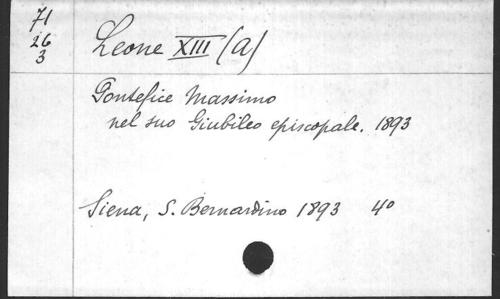 71
26
3
Leone XIII (A)
Pontefice Massimo
nel suo Giubileo episcopale. 1893
Siena, S. Bernardino 1893 4º